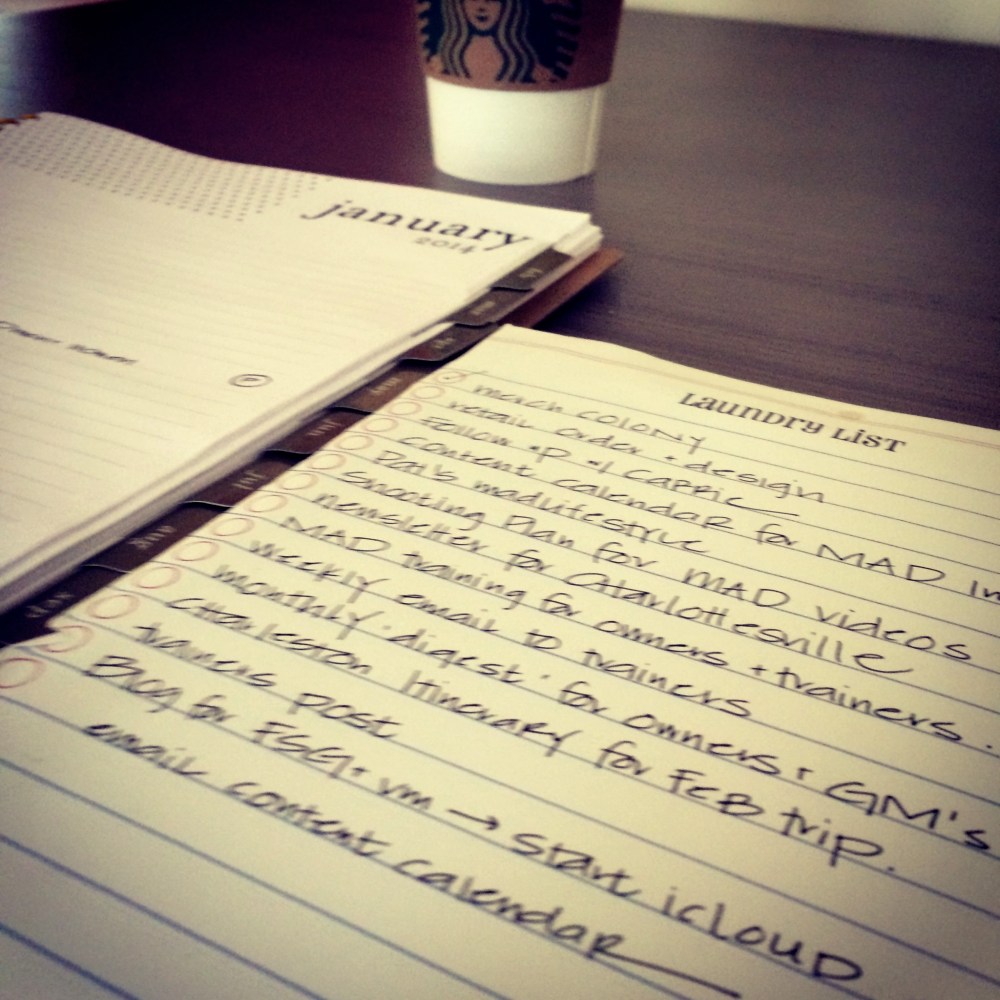 january
2014
Laundry List
merch colony
retail order + design
Follow up w/ Capric
content calendar for MAD In
Dai's madlifestyle
Shooting Plan for MAD videos
newsletter for Charlottesville
MAD training for owners + trainers.
weekly email to trainers
monthly "digest" for owners + GM's
Charleston Itinerary for FEB trip.
trainers post
Blog for FGG + vm → start icloud
email content calendar